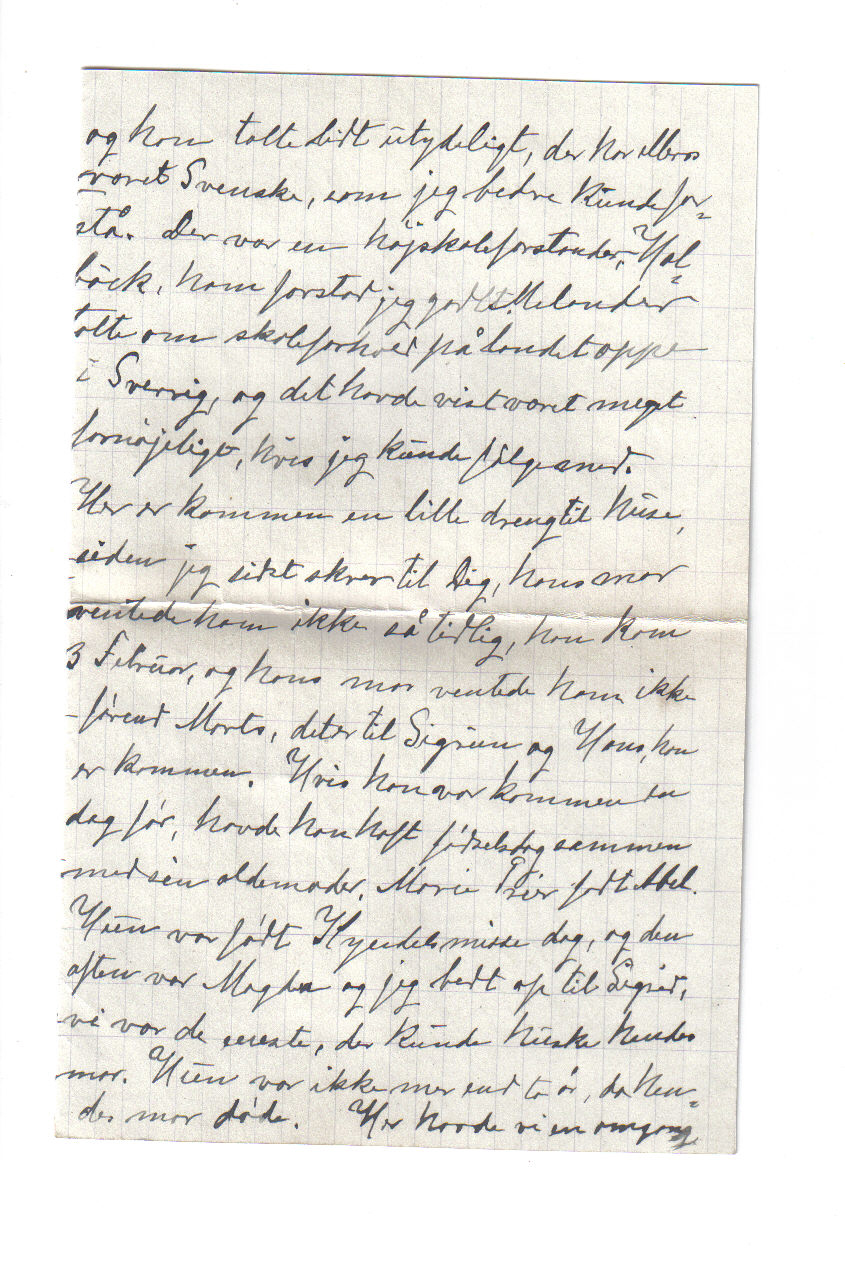 og han talte lidt utydeligt, der har ellers
været Svenske, som jeg bedre kunde for=
stå. Der var en højskoleforstander, Hol=
bäck, ham forstod jeg godt. Melander
talte om skoleforhold på landet oppe
i Sverrig, og det havde vist været meget
fornøjeligt, hvis jeg kunde følge med.
Her er kommen en lille dreng til huse,
siden jeg sidst skrev til Dig, hans mor
ventede ham ikke så tidlig, han kom
3 Februar, og hans mor ventede ham ikke
førend Marts, det er til Sigrun og Hans, han
er kommen. Hvis han var kommen en
dag før, havde han haft fødselsdag sammen
med sin oldemoder, Marie født Abel.
Hun var født Kyndelsmisse dag, og den
aften var Magda og jeg bedt op til Sigrid,
vi var de eneste, der kunde huske hendes
mor. Hun var ikke mer end to år, da hen=
des mor døde. Her havde vi en omgang